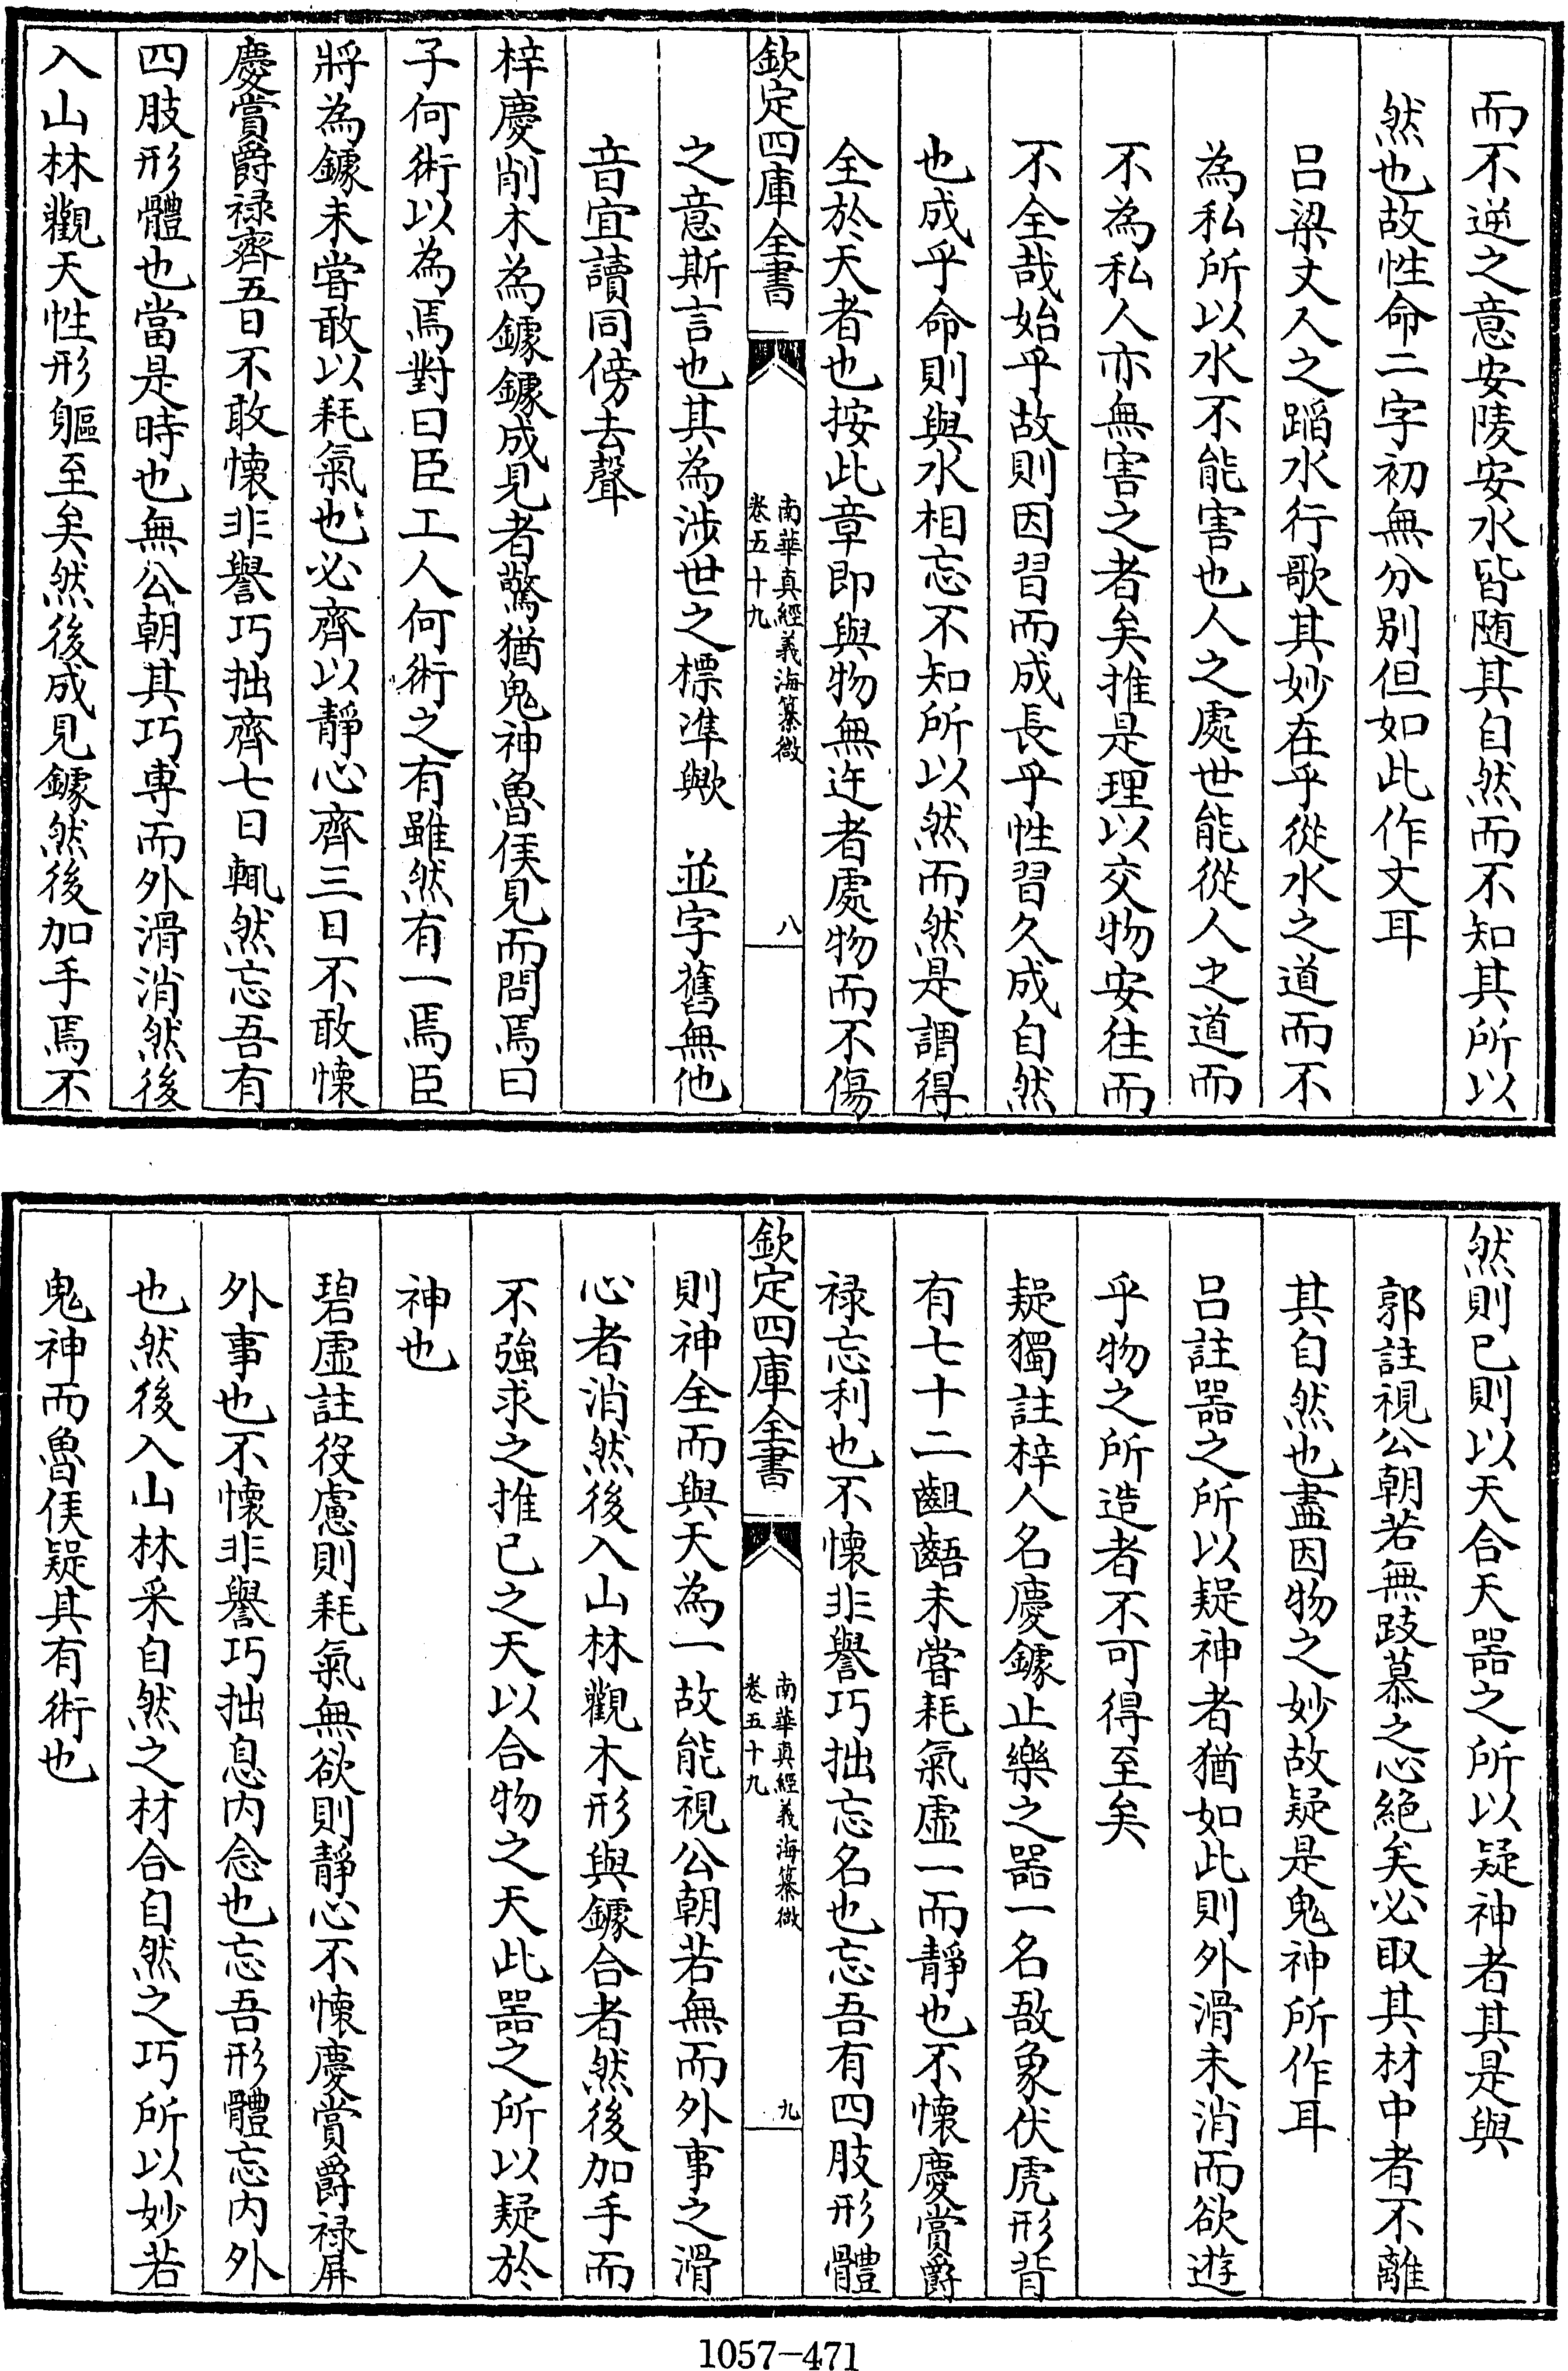 而不逆之意安陵安水皆随其自然而不知其所以
然也故性命二字初無分別但如此作文耳
吕梁丈人之蹈水行歌其妙在乎從水之道而不
為私所以水不能害也人之處世能從人之道而
不為私人亦無害之者矣推是理以交物安往而
不全哉始乎故則因習而成長乎性習久成自然
也成乎命則與水相忘不知所以然而然是謂得
全於天者也按此章即與物無迕者處物而不傷
欽定四庫全書
南華真經義海纂微
卷五十九
八
之意斯言也其為涉世之標準歟　並字舊無他
音宜讀同傍去聲
梓慶削木為鐻鐻成見者驚猶鬼神魯侯見而問焉曰
子何術以為焉對曰臣工人何術之有雖然有一焉臣
將為鐻未嘗敢以耗氣也必齊以靜心齊三日不敢懷
慶賞爵禄齊五日不敢懷非譽巧拙齊七日輒然忘吾有
四肢形體也當是時也無公朝其巧専而外滑消然後
入山林觀天性形軀至矣然後成見鐻然後加手焉不
然則已則以天合天器之所以疑神者其是與
郭註視公朝若無跂慕之心絶矣必取其材中者不離
其自然也盡因物之妙故疑是鬼神所作耳
吕註器之所以疑神者猶如此則外滑未消而欲遊
乎物之所造者不可得至矣
疑獨註梓人名慶鐻止樂之器一名敔象伏虎形背
有七十二齟齬未嘗耗氣虚一而靜也不懷慶賞爵
禄忘利也不懷非譽巧拙忘名也忘吾有四肢形體
欽定四庫全書
南華真經義海纂微
卷五十九
九
則神全而與天為一故能視公朝若無而外事之滑
心者消然後入山林觀木形與鐻合者然後加手而
不強求之推已之天以合物之天此器之所以疑於
神也
碧虚註役慮則耗氣無欲則靜心不懷慶賞爵禄屏
外事也不懷非譽巧拙息内念也忘吾形體忘内外
也然後入山林采自然之材合自然之巧所以妙若
鬼神而魯侯疑其有術也
1057-471